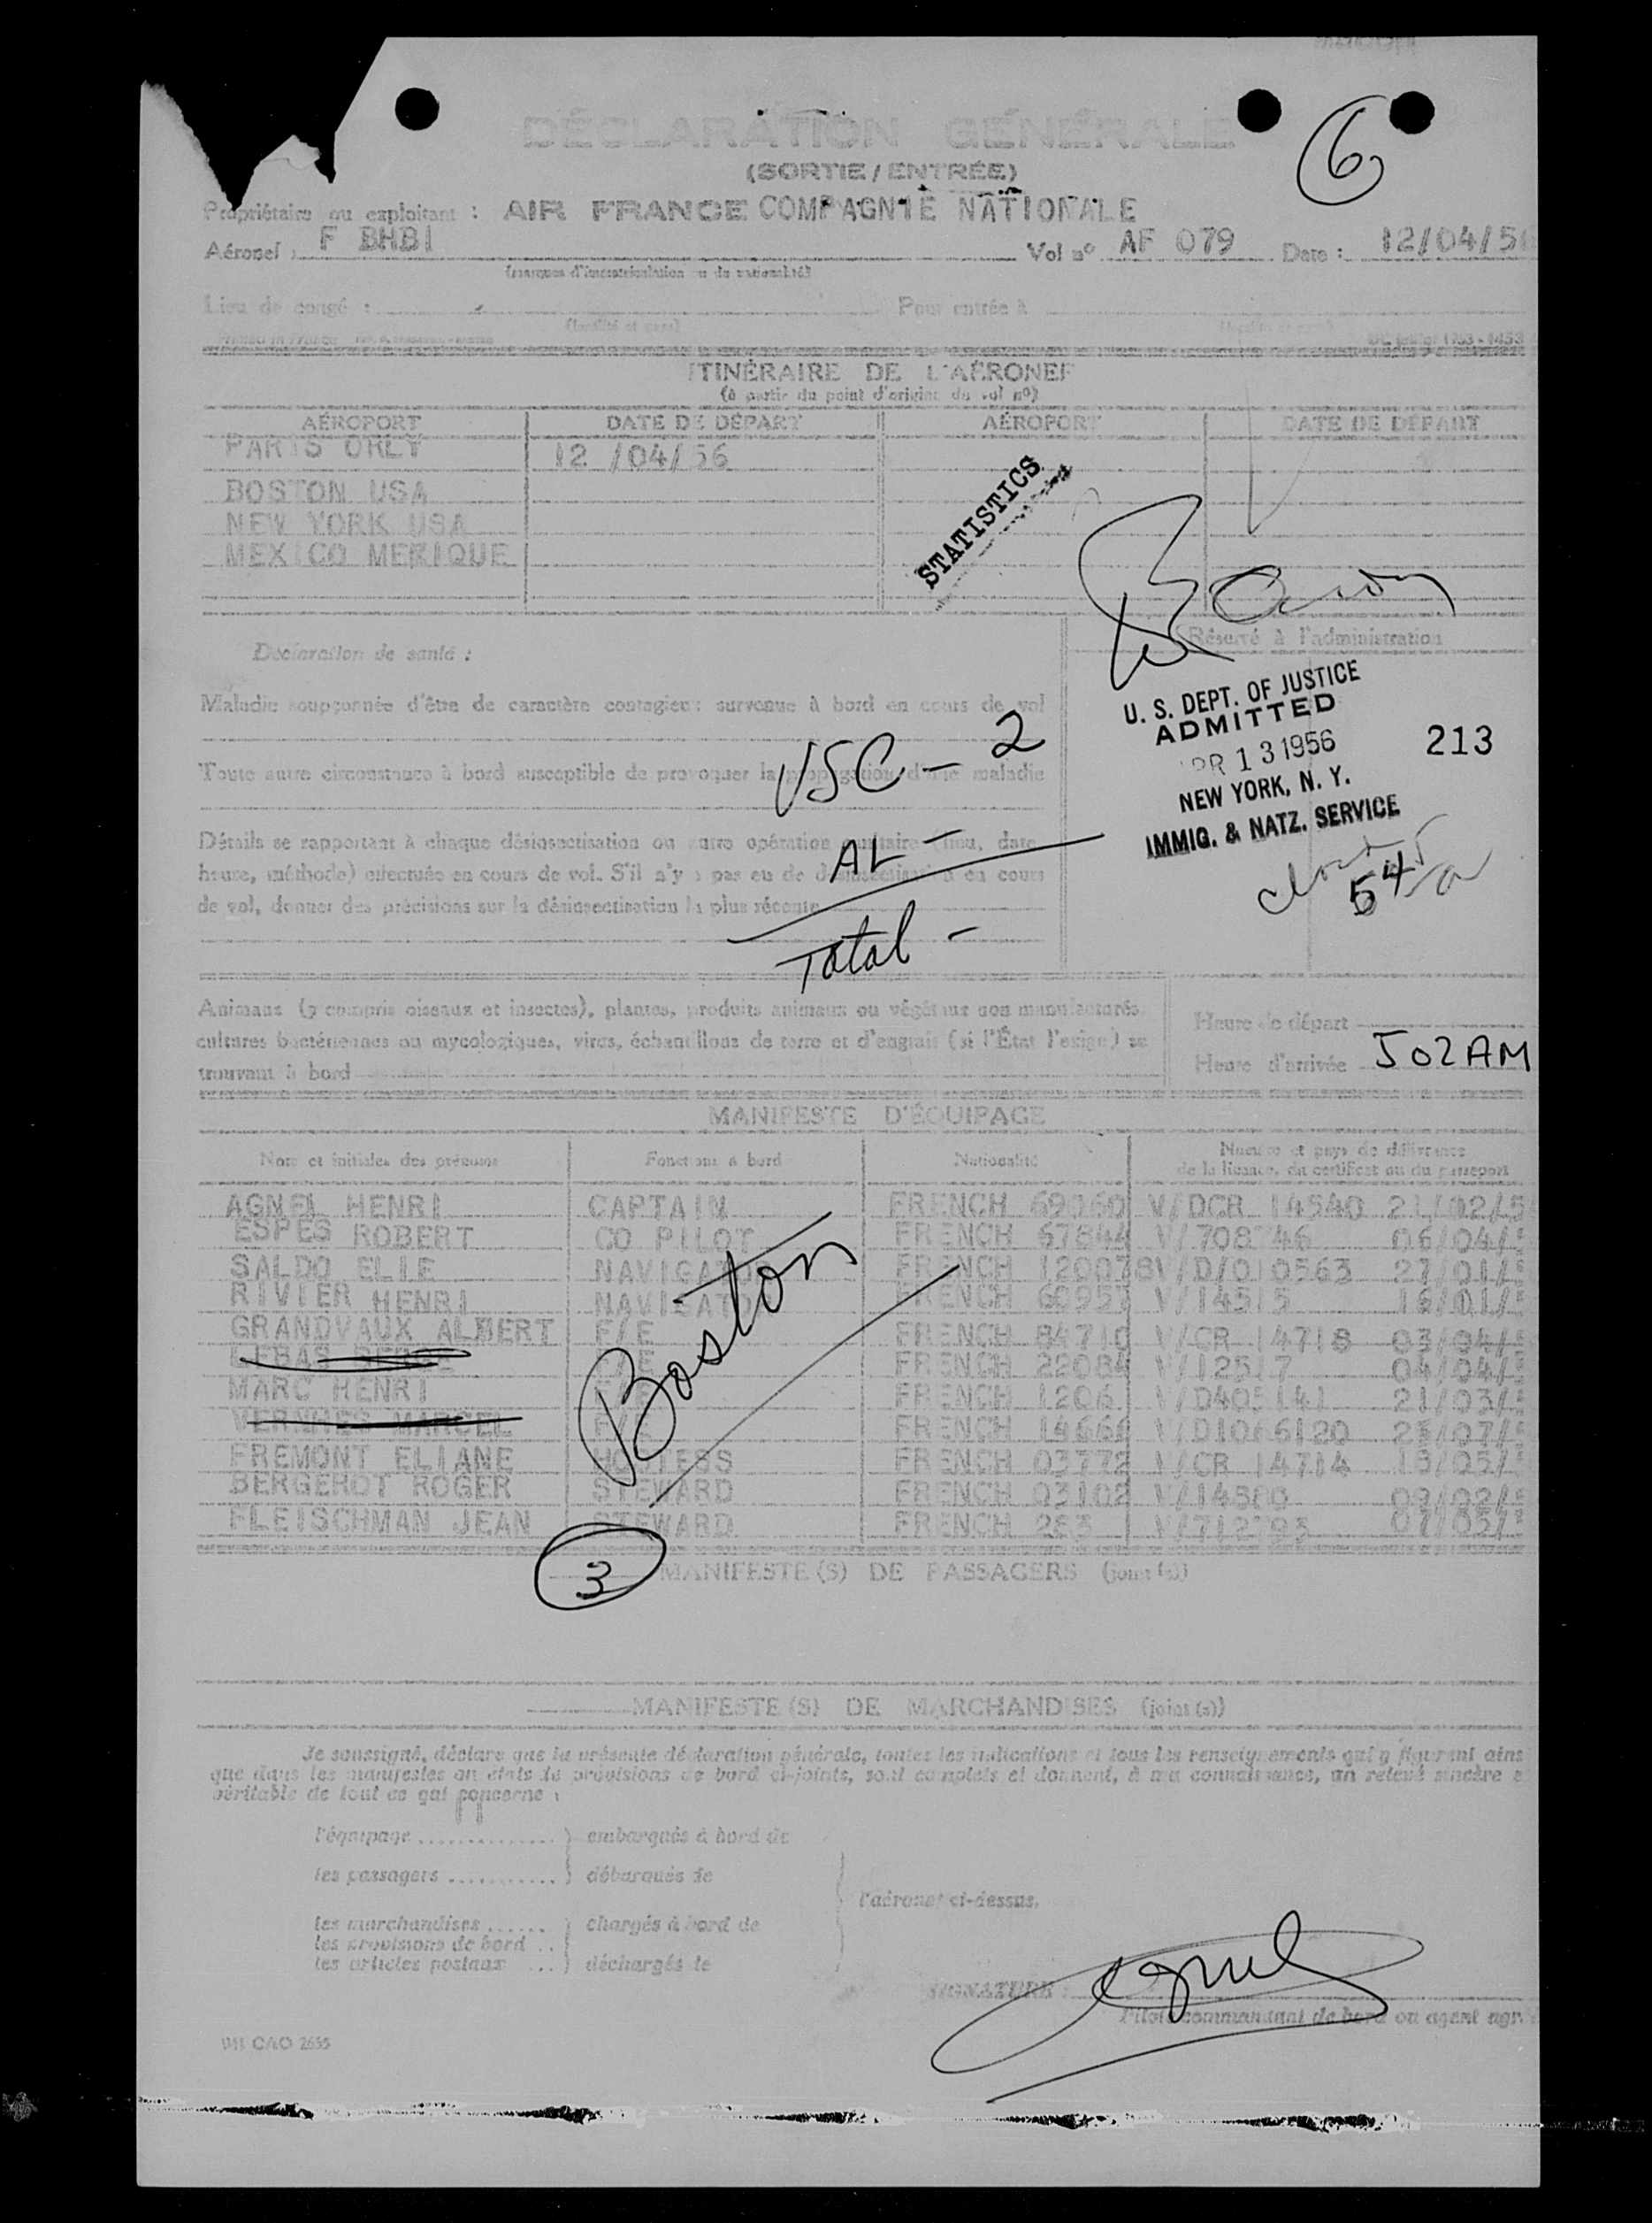 DÉCLARATION GÉNÉRALE
(SORTIE / ENTRÉE)
6
Propriétaire ou exploitant : AIR FRANCE COMPAGNIE NATIONALE
Aéronef : F BHBI Vol nº AF 079 Date : 12/04/5
(marques d'immatriculation ou de nationalité)
Lieu de congé : Pour entrée à
(localité et pays)
ITINÉRAIRE DE L'AÉRONEF
(à partir du point d'origine du vol nº)
AÉROPORT DATE DE DÉPART AÉROPORT DATE DE DÉPART
PARIS ORLY 12 /04/56
BOSTON USA
NEW YORK USA
MEXICO MEXIQUE
STATISTICS
Réservé à l'administration
Déclaration de santé :
Maladie soupçonnée d'être de caractère contagieux survenue à bord en cours de vol
U. S. DEPT. OF JUSTICE
ADMITTED
PR 13 1956
NEW YORK, N. Y.
IMMIG. & NATZ. SERVICE
213
USC - 2
Toute autre circonstance à bord susceptible de provoquer la propagation d'une maladie
Détails se rapportant à chaque désinsectisation ou autre opération sanitaire (lieu, date,
heure, méthode) effectuée en cours de vol. S'il n'y a pas eu de désinsectisation en cours
de vol, donner des précisions sur la désinsectisation la plus récente
AL -
Total -
54
Animaux (y compris oiseaux et insectes), plantes, produits animaux ou végétaux non manufacturés,
cultures bactériennes ou mycologiques, virus, échantillons de terre et d'engrais (si l'État l'exige) se
trouvant à bord
Heure de départ
Heure d'arrivée 502 AM
MANIFESTE D'ÉQUIPAGE
Nom et initiales des prénoms Fonctions à bord Nationalité Numéro et pays de délivrance
de la licence, du certificat ou du passeport
AGNEL HENRI CAPTAIN FRENCH 69060 V/DCR 14540 21/02/5
ESPES ROBERT CO PILOT FRENCH 67844 V/708 46 06/04/
SALDO ELIE NAVIGATO FRENCH 120078 V/D/010563 27/01/
RIVIER HENRI NAVIGATO FRENCH 60957 V/14515 16/01/
GRANDVAUX ALBERT F/E FRENCH 84710 V/CR 14718 03/04/
LEBAS F/E FRENCH 22084 V/12517 04/04/
MARC HENRI FRENCH 1206 V/D405141 21/03/
VERNHES MARCEL FRENCH 14666 V/D1066120 25/07/
FREMONT ELIANE HOSTESS FRENCH 03772 V/CR 14714 15/03/
BERGEROT ROGER STEWARD FRENCH 03102 V/14580 09/02/
FLEISCHMAN JEAN STEWARD FRENCH 283 V/712793 07/05/
Boston
3
MANIFESTE (S) DE PASSAGERS (joint (s))
MANIFESTE (S) DE MARCHANDISES (joint (s))
Je soussigné, déclare que la présente déclaration générale, toutes les indications et tous les renseignements qui y figurent ains
que dans les manifestes ou états de provisions de bord ci-joints, sont complets et donnent, à ma connaissance, un relevé sincère e
véritable de tout ce qui concerne :
l'équipage .............. } embarqués à bord de
les passagers ........... } débarqués de
l'aéronef ci-dessus.
les marchandises ...... } chargés à bord de
les provisions de bord ..
les articles postaux ... } déchargés de
SIGNATURE :
Pilote commandant de bord ou agent agr